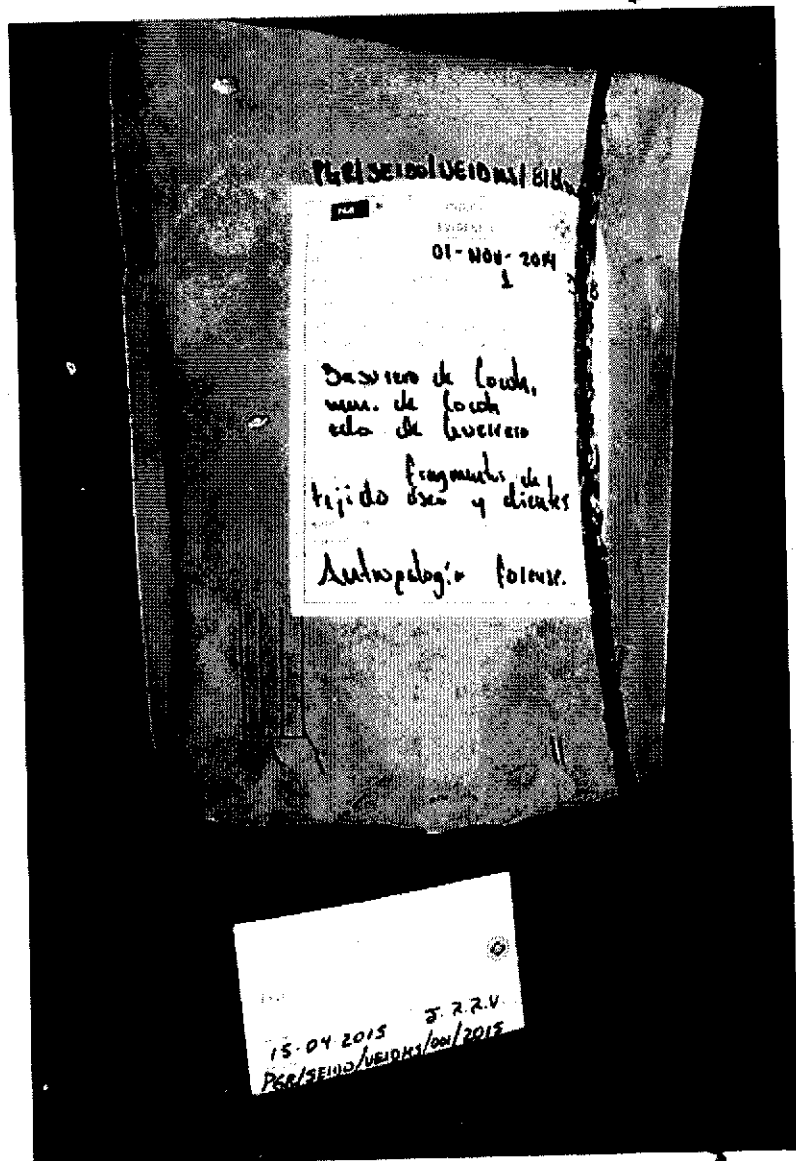 PGR/SEIDO/UEIDMS/818
PGR
EVIDENCIA
01-NOV-2014
1
Basurero de Cocula,
mun. de Cocula
edo. de Guerrero
fragmentos de
tejido óseo y dientes
Antropología forense.
15-04-2015 J.R.R.V.
PGR/SEIDO/UEIDMS/001/2015